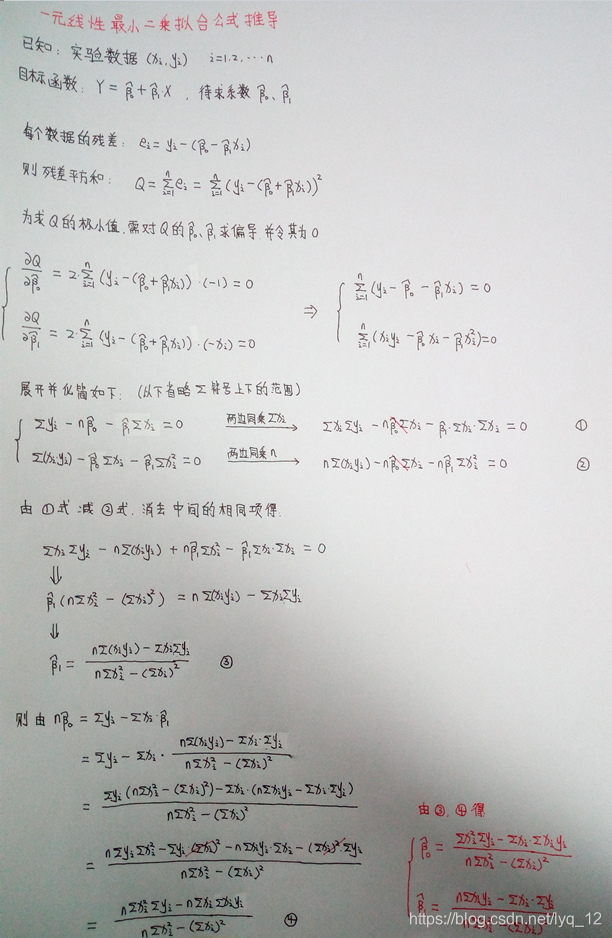 一元线性最小二乘拟合公式推导
已知: 实验数据 (xᵢ, yᵢ) i=1.2,⋯n
目标函数: Y = β̂₀ + β̂₁X , 待求系数 β̂₀、β̂₁
每个数据的残差: eᵢ = yᵢ - (β̂₀ - β̂₁xᵢ)
则残差平方和: Q = Σⁿᵢ₌₁ eᵢ = Σⁿᵢ₌₁ (yᵢ - (β̂₀ + β̂₁xᵢ))²
为求Q的极小值,需对Q的β̂₀、β̂₁求偏导,并令其为0
{ ∂Q/∂β̂₀ = 2·Σⁿᵢ₌₁ (yᵢ - (β̂₀ + β̂₁xᵢ))·(-1) = 0 ⇒ { Σⁿᵢ₌₁ (yᵢ - β̂₀ - β̂₁xᵢ) = 0
∂Q/∂β̂₁ = 2·Σⁿᵢ₌₁ (yᵢ - (β̂₀ + β̂₁xᵢ))·(-xᵢ) = 0 Σⁿᵢ₌₁ (xᵢyᵢ - β̂₀xᵢ - β̂₁xᵢ²) = 0
展开并化简如下: (以下省略Σ符号上下的范围)
{ Σyᵢ - nβ̂₀ - β̂₁Σxᵢ = 0 两边同乘Σxᵢ → ΣxᵢΣyᵢ - nβ̂₀Σxᵢ - β̂₁·Σxᵢ·Σxᵢ = 0 ①
Σ(xᵢyᵢ) - β̂₀Σxᵢ - β̂₁Σxᵢ² = 0 两边同乘n → nΣ(xᵢyᵢ) - nβ̂₀Σxᵢ - nβ̂₁Σxᵢ² = 0 ②
由①式减②式,消去中间的相同项得.
ΣxᵢΣyᵢ - nΣ(xᵢyᵢ) + nβ̂₁Σxᵢ² - β̂₁Σxᵢ·Σxᵢ = 0
⇓
β̂₁(nΣxᵢ² - (Σxᵢ)²) = nΣ(xᵢyᵢ) - ΣxᵢΣyᵢ
⇓
β̂₁ = (nΣ(xᵢyᵢ) - ΣxᵢΣyᵢ) / (nΣxᵢ² - (Σxᵢ)²) ③
则由 nβ̂₀ = Σyᵢ - Σxᵢ·β̂₁
= Σyᵢ - Σxᵢ · (nΣ(xᵢyᵢ) - Σxᵢ·Σyᵢ) / (nΣxᵢ² - (Σxᵢ)²)
= (Σyᵢ(nΣxᵢ² - (Σxᵢ)²) - Σxᵢ·(nΣxᵢyᵢ - Σxᵢ·Σyᵢ)) / (nΣxᵢ² - (Σxᵢ)²)
= (nΣyᵢΣxᵢ² - Σyᵢ·(Σxᵢ)² - nΣxᵢyᵢ·Σxᵢ - (Σxᵢ)²·Σyᵢ) / (nΣxᵢ² - (Σxᵢ)²)
= (nΣxᵢ²Σyᵢ - nΣxᵢΣxᵢyᵢ) / (nΣxᵢ² - (Σxᵢ)²) ④
由③,④得
{ β̂₀ = (Σxᵢ²Σyᵢ - Σxᵢ·Σxᵢyᵢ) / (nΣxᵢ² - (Σxᵢ)²)
β̂₁ = (nΣxᵢyᵢ - Σxᵢ·Σyᵢ) / (nΣxᵢ² - (Σxᵢ)²)
https://blog.csdn.net/lyq_12